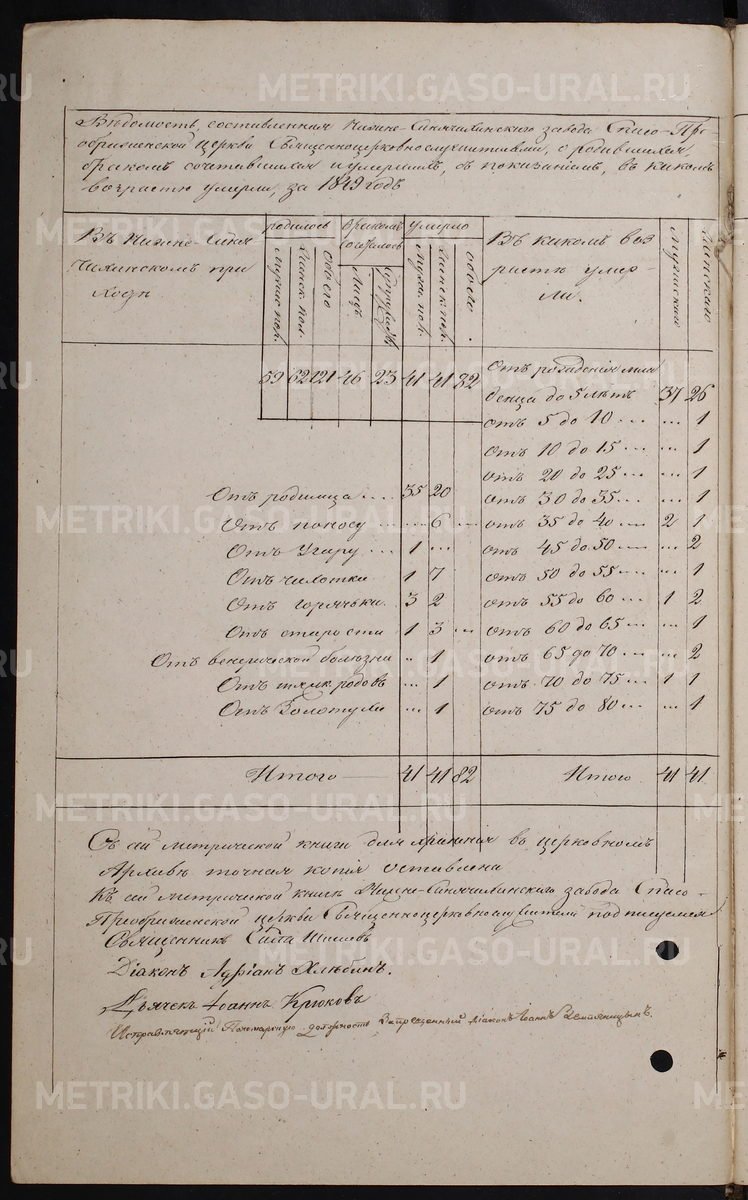 METRIKI.GASO-URAL.RU
Вѣдомость, составленная Нижне-Синячихинскаго завода Спасо-Пре-
ображенской церкви Священноцерковнослужителями, о родившихся,
бракомъ сочетавшихся и умершихъ, съ показаніемъ, въ какомъ
возрастѣ умерли, за 1849 годъ
Въ Нижне-Синя
чихинскомъ при
ходѣ
родилось
Мужес. пол.
Женск. пол.
обоего
бракомъ
сочеталось
Лицъ
супружествъ
умерло
Муж. пол.
Женск. пол.
обоего
Въ какомъ воз
растѣ умер-
ли.
Мужескаго
Женскаго
59 62 121 46 23 41 41 82
Отъ рожденія мла
денца до 5 лѣтъ 37 26
отъ 5 до 10 ... ... 1
отъ 10 до 15 ... ... 1
отъ 20 до 25 ... ... 1
Отъ родимца .... 35 20 отъ 30 до 35 ... ... 1
Отъ поносу ... ... 6 ... отъ 35 до 40 ... 2 1
Отъ Угару ... 1 ... отъ 45 до 50 ... ... 2
Отъ чахотки 1 7 отъ 50 до 55 ... ... 1
Отъ горячьки. 3 2 отъ 55 до 60 ... 1 2
Отъ старости 1 3 ... отъ 60 до 65 ... ... 1
Отъ венерической болѣзни .. 1 отъ 65 до 70 ... ... 2
Отъ тяжк. родовъ ... 1 отъ 70 до 75 ... 1 1
Отъ Золотухи ... 1 отъ 75 до 80 ... ... 1
Итого 41 41 82 Итого 41 41
Съ сей метрической книги для храненія въ церковномъ
Архивѣ точная копія оставлена
Къ сей метрической книгѣ Нижне-Синячихинскаго завода Спасо-
Преображенской церкви Священноцерковнослужители подписуемся
Священникъ Сила
Діаконъ Адріанъ Хлѣбинъ.
Дьячекъ Іоаннъ Крюковъ
Исправляющій Пономарскую должность Запрещенный діаконъ Іоаннъ Земляницынъ.